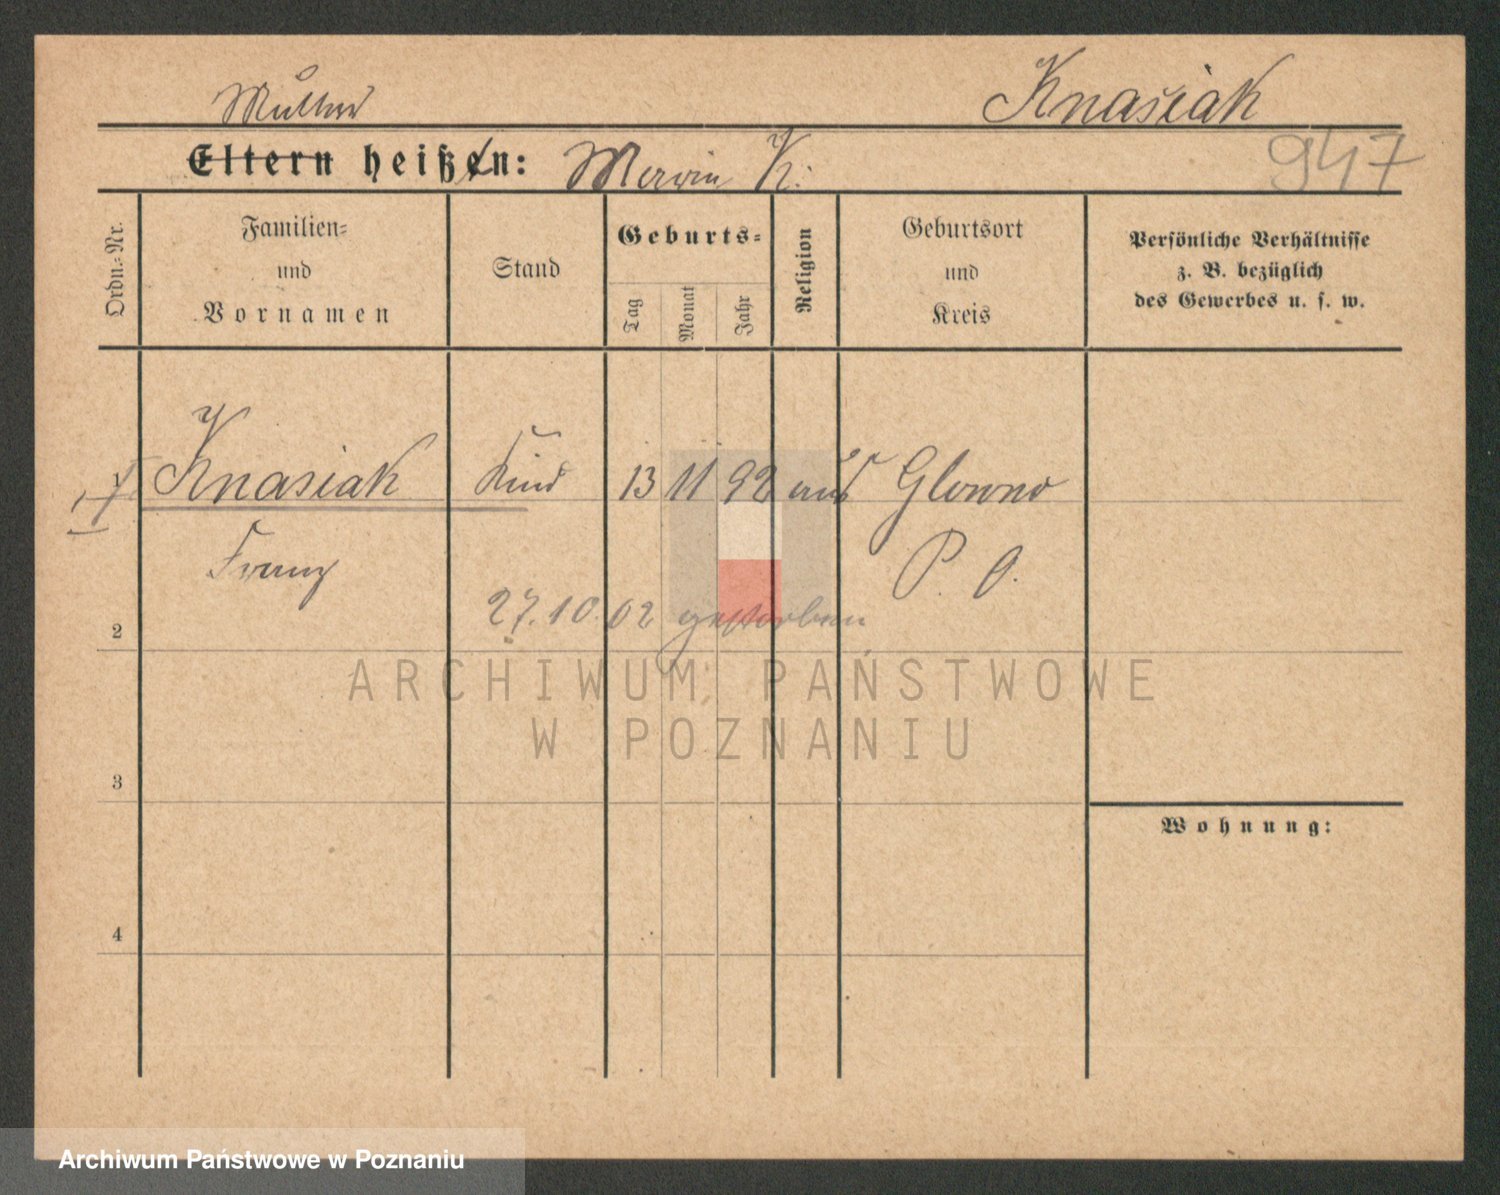 Mutter
Knasiak
Eltern heißen: Marie K.
947
Ordn.-Nr.
Familien-
und
Vornamen
Stand
Geburts-
Tag
Monat
Jahr
Religion
Geburtsort
und
Kreis
Persönliche Verhältnisse
z. B. bezüglich
des Gewerbes u. s. w.
Knasiak Kind 13 11 92 aus Glowno
Franz
P. O.
27. 10. 02 gestorben
2
ARCHIWUM PAŃSTWOWE
W POZNANIU
3
Wohnung:
4
Archiwum Państwowe w Poznaniu